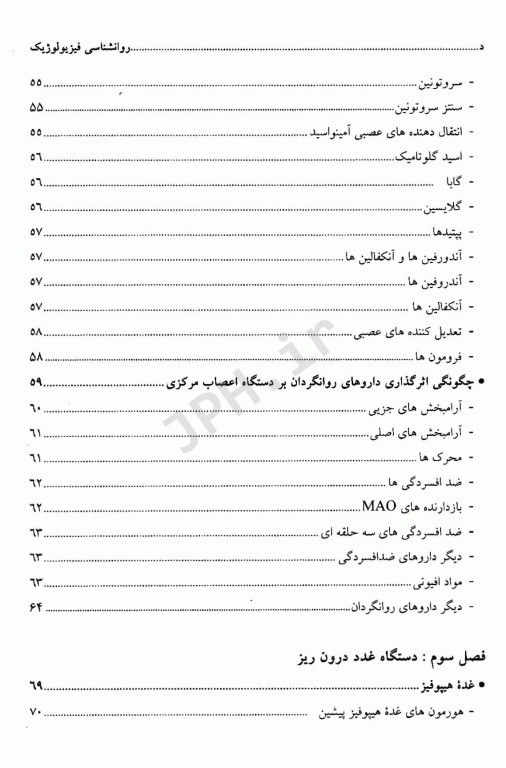 د......روانشناسی فیزیولوژیک
- سروتونین......۵۵
- سنتز سروتونین......۵۵
- انتقال دهنده های عصبی آمینواسید......۵۵
- اسید گلوتامیک......۵۶
- گابا......۵۶
- گلایسین......۵۶
- پپتیدها......۵۷
- آندورفین ها و آنکفالین ها......۵۷
- آندروفین ها......۵۷
- آنکفالین ها......۵۷
- تعدیل کننده های عصبی......۵۸
- فرومون ها......۵۸
• چگونگی اثرگذاری داروهای روانگردان بر دستگاه اعصاب مرکزی......۵۹
- آرامبخش های جزیی......۶۰
- آرامبخش های اصلی......۶۱
- محرک ها......۶۱
- ضد افسردگی ها......۶۲
- بازدارنده های MAO......۶۲
- ضد افسردگی های سه حلقه ای......۶۳
- دیگر داروهای ضدافسردگی......۶۳
- مواد افیونی......۶۳
- دیگر داروهای روانگردان......۶۴
فصل سوم : دستگاه غدد درون ریز
• غدهٔ هیپوفیز......۶۹
- هورمون های غدهٔ هیپوفیز پیشین......۷۰
JPH.ir